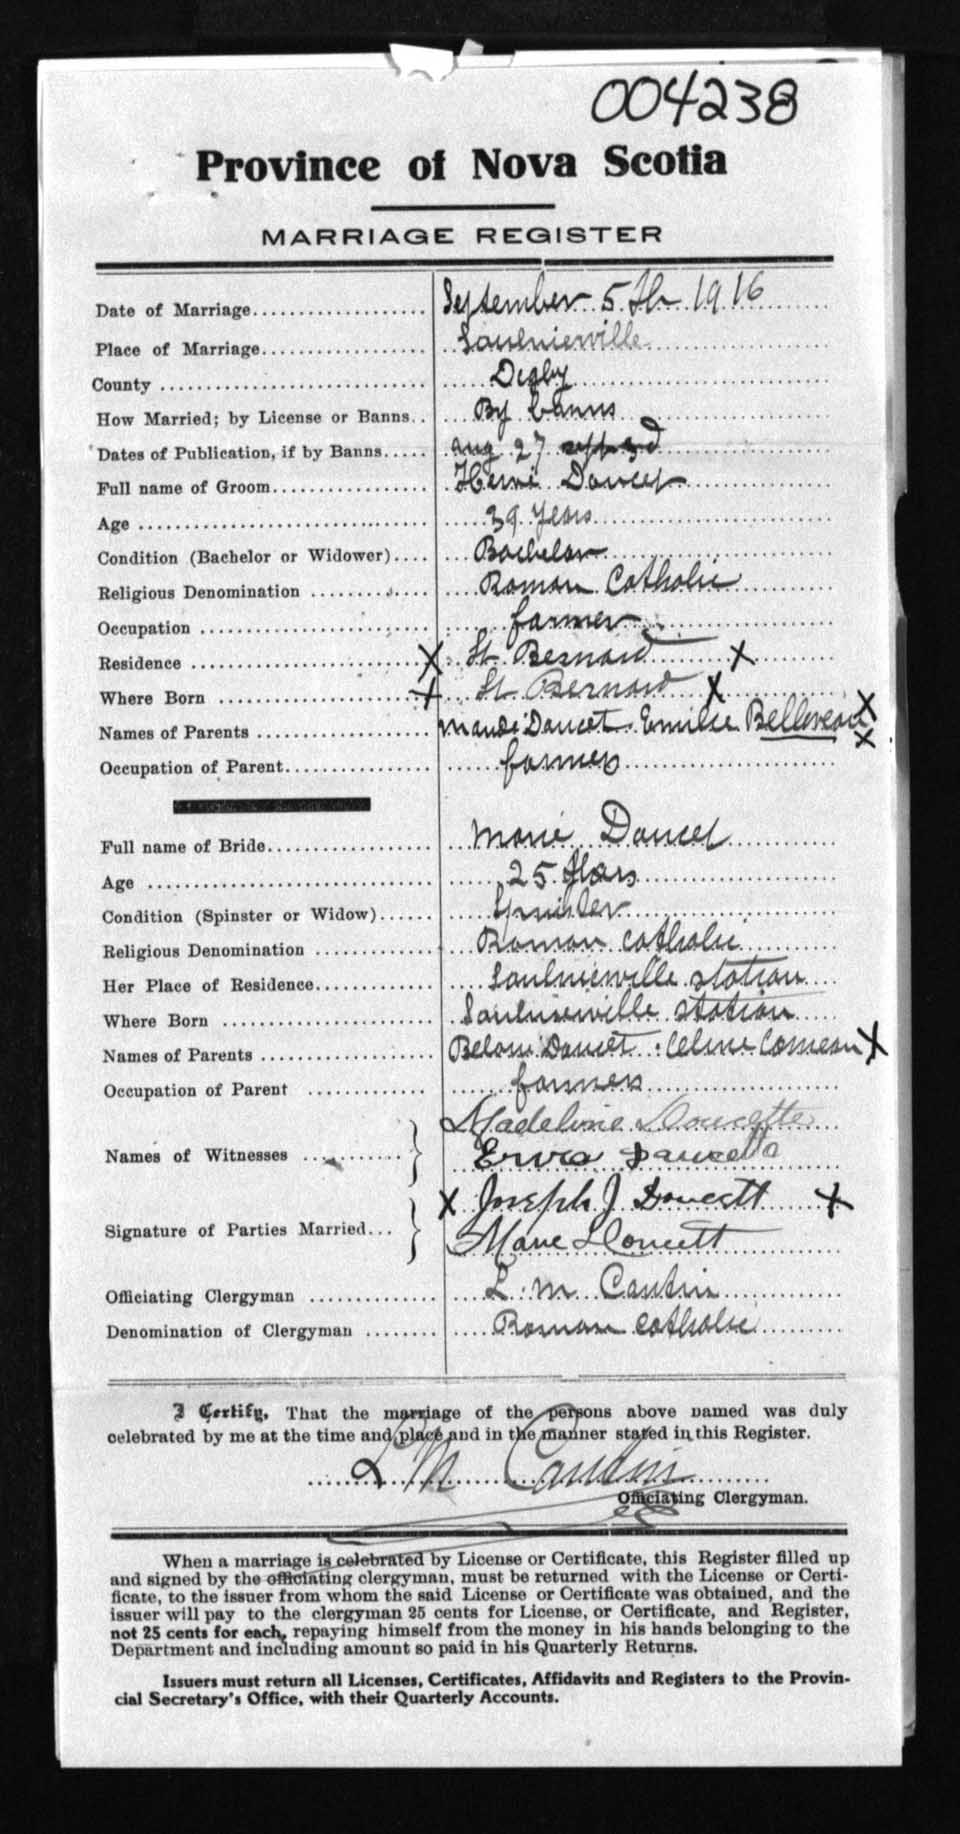 004238
Province of Nova Scotia
MARRIAGE REGISTER
Date of Marriage.................... September 5 th 1916
Place of Marriage.................... Saulnierville
County ............................. Digby
How Married; by License or Banns.. By banns
Dates of Publication, if by Banns..... aug 27 sept 3d
Full name of Groom.................. Doucet
Age ................................ 39 years
Condition (Bachelor or Widower).... Bachelor
Religious Denomination ............. Roman Catholic
Occupation ......................... farmer
Residence .......................... X St Bernard X
Where Born ........................ X St Bernard X
Names of Parents ................... Doucet. Emilie Belliveau X
Occupation of Parent................ farmer X
Full name of Bride.................. Marie Doucet
Age ................................ 25 Years
Condition (Spinster or Widow)...... Spinster
Religious Denomination ............. Roman catholic
Her Place of Residence............. Saulnierville station
Where Born ........................ Saulnierville station
Names of Parents ................... Doucet. Celine Comeau X
Occupation of Parent ............... farmer
Madeline Doucette
Names of Witnesses ........... } Doucette
X Joseph J Doucett X
Signature of Parties Married... } Marie Doucett
Officiating Clergyman .............. L. M Cautin
Denomination of Clergyman ........ Roman catholic
I Certify, That the marriage of the persons above named was duly
celebrated by me at the time and place and in the manner stated in this Register.
L M Cautin
Officiating Clergyman.
When a marriage is celebrated by License or Certificate, this Register filled up
and signed by the officiating clergyman, must be returned with the License or Certi-
ficate, to the issuer from whom the said License or Certificate was obtained, and the
issuer will pay to the clergyman 25 cents for License, or Certificate, and Register,
not 25 cents for each, repaying himself from the money in his hands belonging to the
Department and including amount so paid in his Quarterly Returns.
Issuers must return all Licenses, Certificates, Affidavits and Registers to the Provin-
cial Secretary's Office, with their Quarterly Accounts.